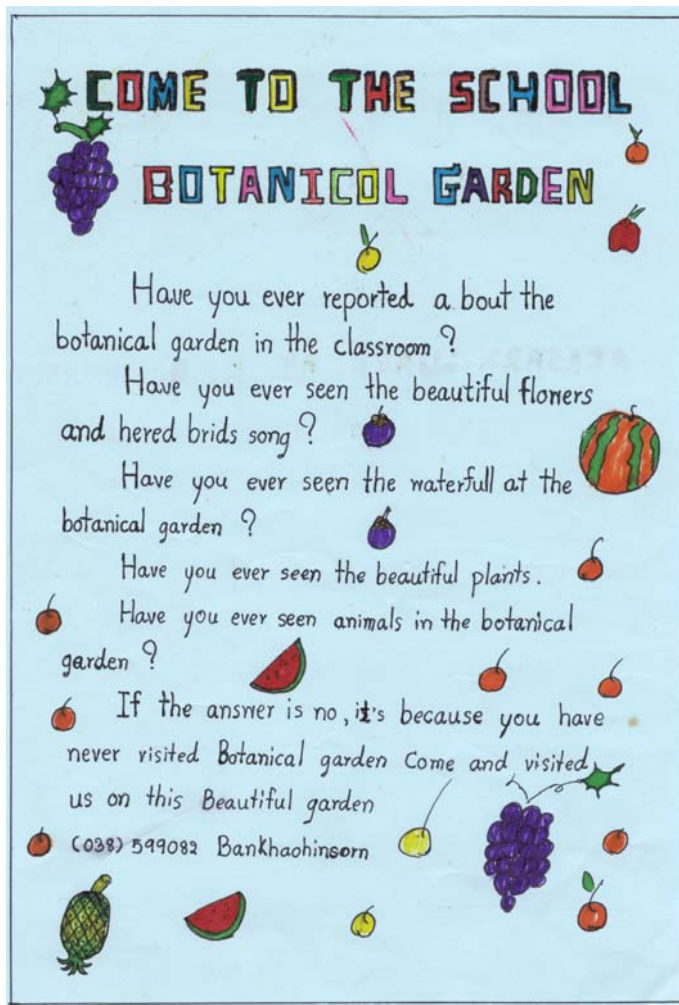 COME TO THE SCHOOL
BOTANICOL GARDEN
Have you ever reported a bout the
botanical garden in the classroom ?
Have you ever seen the beautiful flowers
and hered brids song ?
Have you ever seen the waterfull at the
botanical garden ?
Have you ever seen the beautiful plants.
Have you ever seen animals in the botanical
garden ?
If the answer is no, it's because you have
never visited Botanical garden Come and visited
us on this Beautiful garden
(038) 599082 Bankhaohinsorn